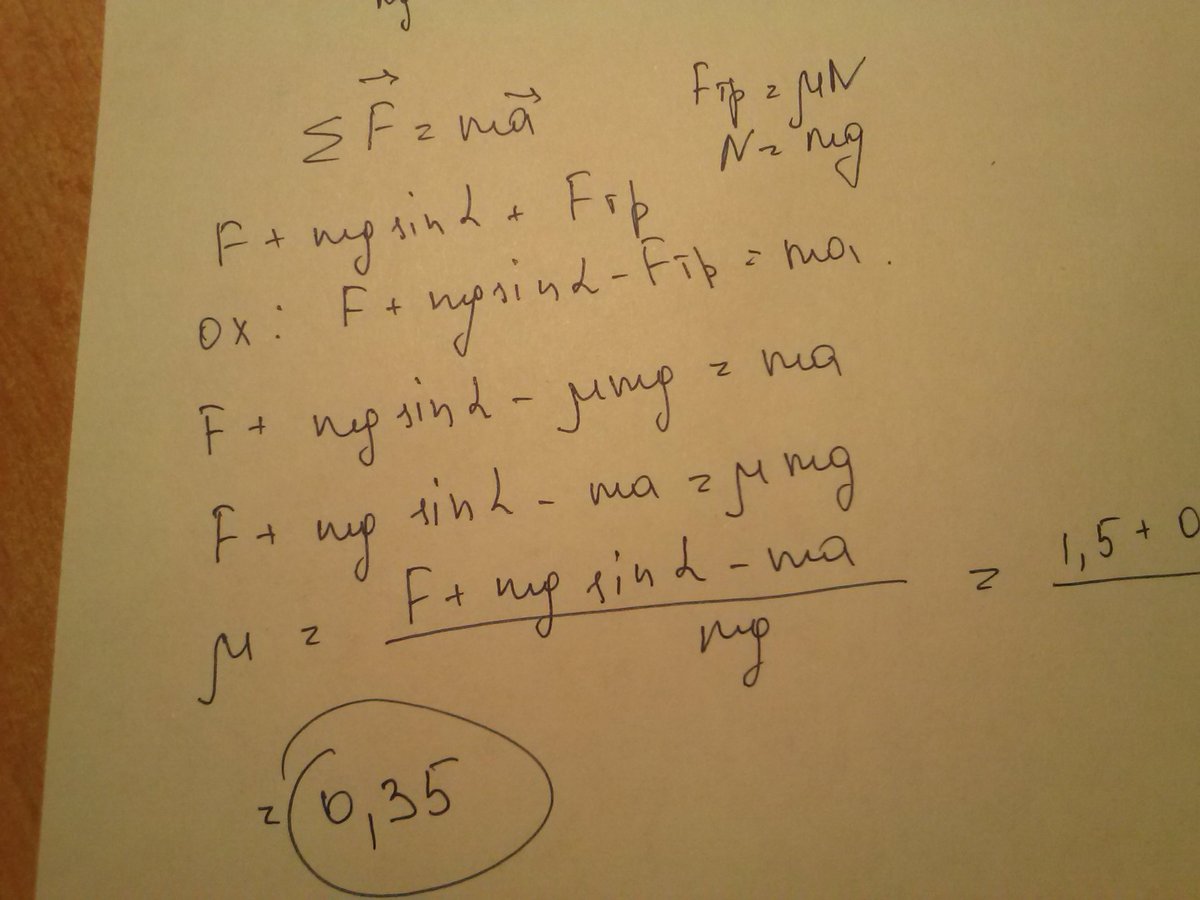 mg
ΣF⃗ = ma⃗
Fтр = μN
N = mg
F + mg sin α + Fтр
OX: F + mg sin α - Fтр = ma.
F + mg sin α - μmg = ma
F + mg sin α - ma = μmg
μ = (F + mg sin α - ma) / mg = 1,5 + 0
= 0,35